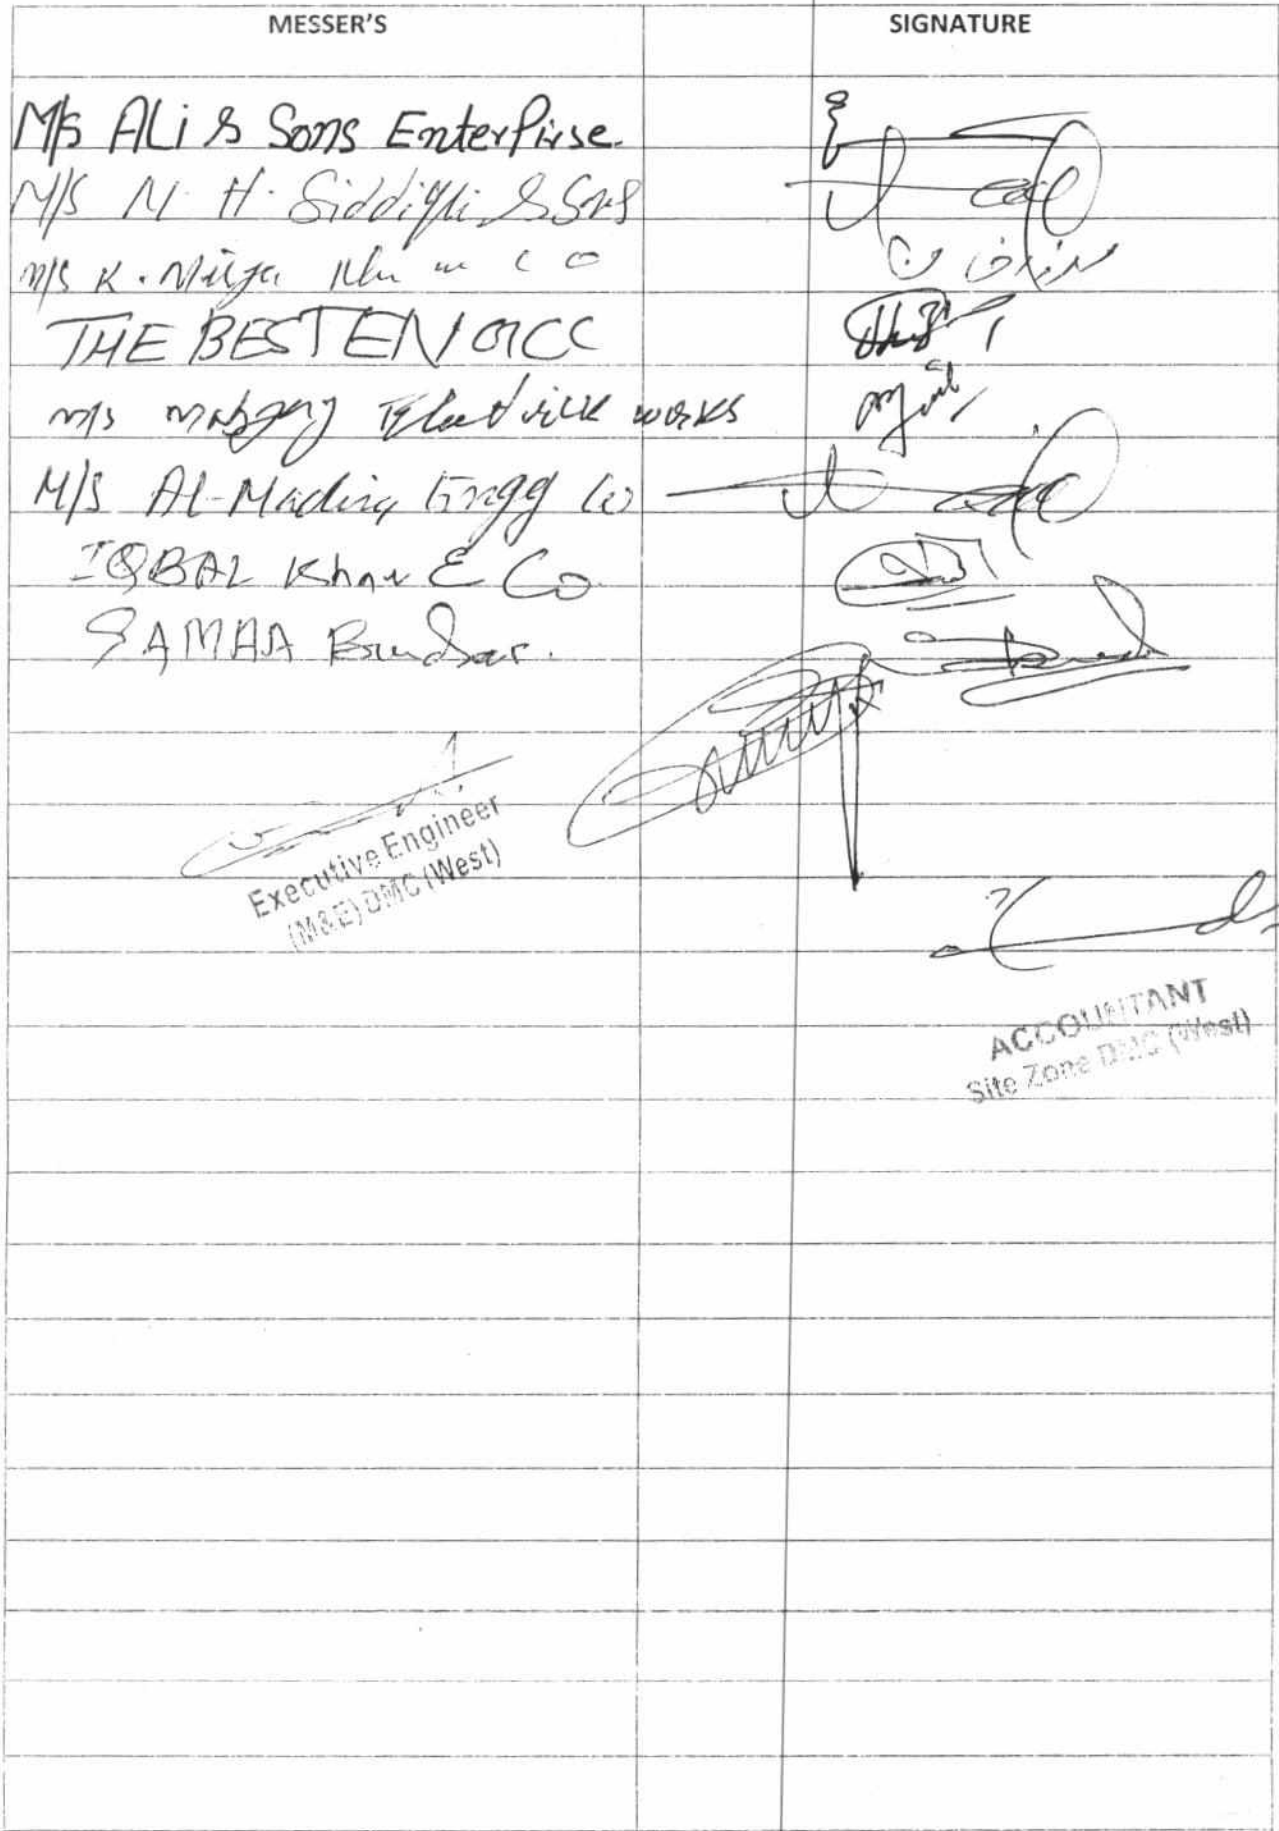 MESSER'S SIGNATURE
M/s ALi & Sons EnterPirse.
M/S M. H. Siddiqui & Sons
M/s K. Mirza Khan Co
THE BEST EN
M/s Electrick works
M/S Al-Madina Engg Co
IQBAL Khan & Co
SAMAA
Executive Engineer
(M&E) DMC (West)
ACCOUNTANT
Site Zone DMC (West)